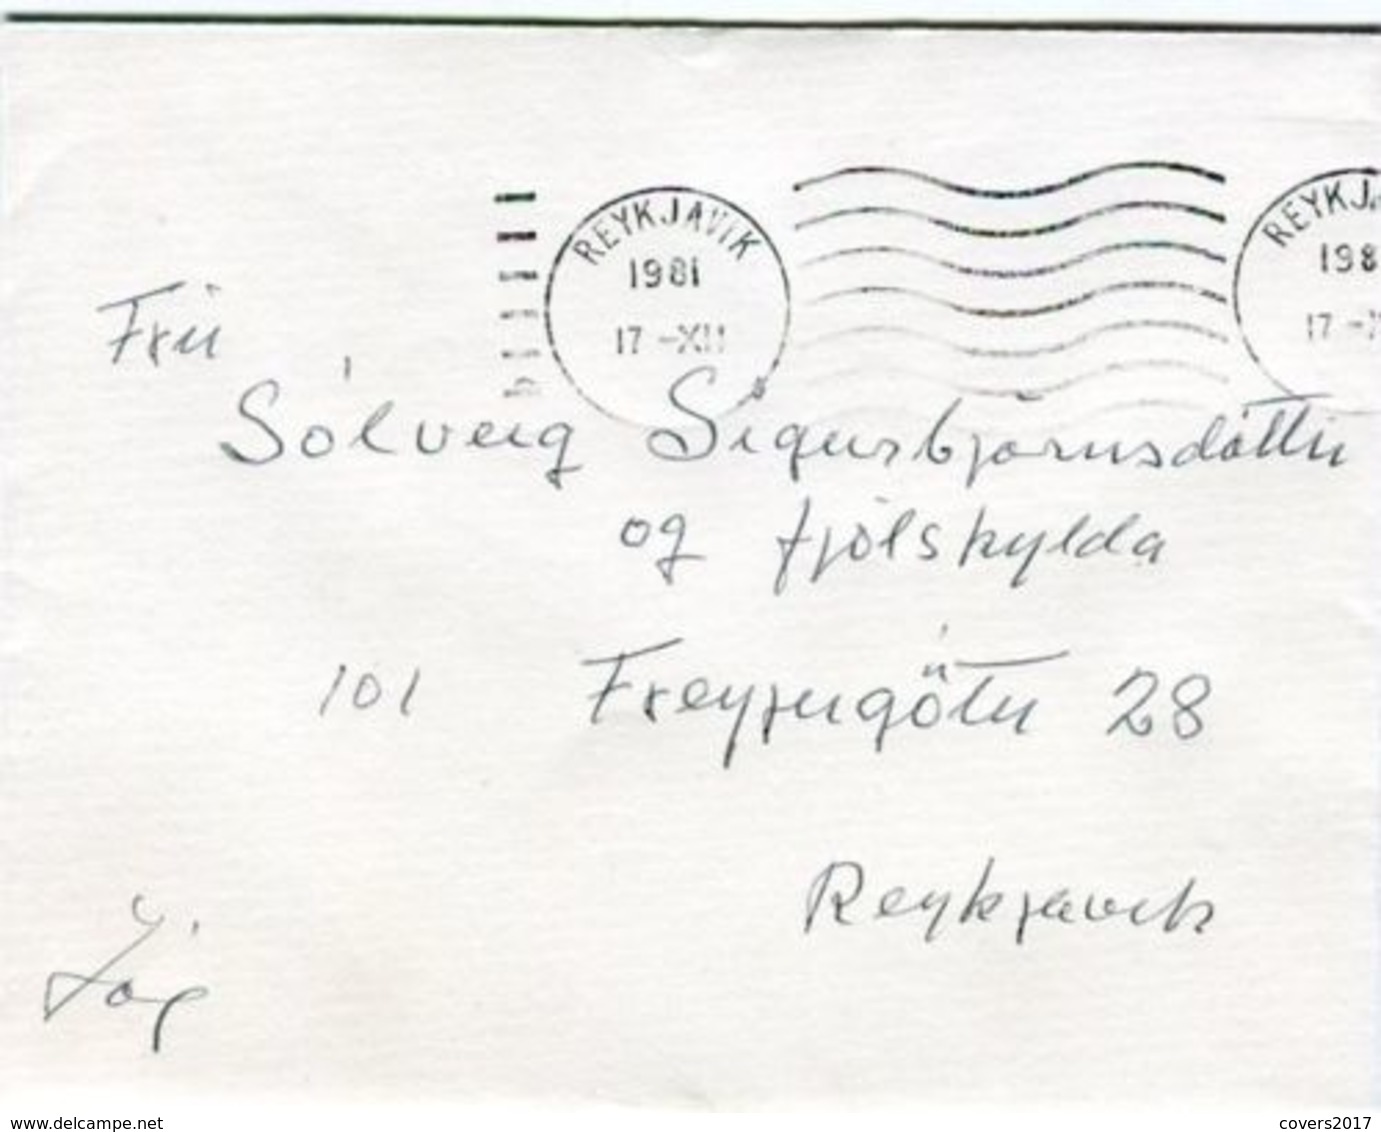 REYKJAVIK
1981
17 -XII
REYKJ
198
17 -X
Frú
Sólveig Sigurbjörnsdóttir
og fjölskylda
101 Freyjugötu 28
Reykjavík
Jóg
delcampe.net
covers2017